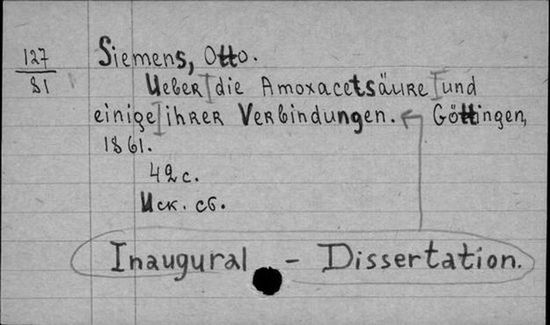 127
81
Siemens, Otto.
Ueber die Amoxacetsäure und
einige ihrer Verbindungen. Göttingen,
1861.
42 с.
Иск. сб.
Inaugural - Dissertation.